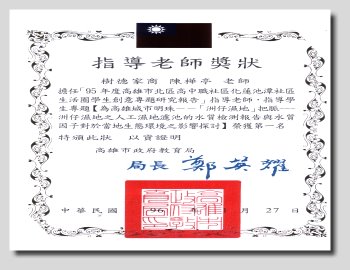 指導老師獎狀
樹德家商 陳樺亭 老師
擔任「95年度高雄市北區高中職社區化蓮池潭社區
生活圈學生創意專題研究報告」指導老師,指導學
生專題【為高雄城市明珠——「洲仔濕地」把脈—
洲仔濕地之人工濕地蓮池的水質檢測報告與水質
因子對於當地生態環境之影響探討】榮獲第一名
持頒此狀 以資證明
高雄市政府教育局
局長 鄭英耀
中華民國 96 月 27 日